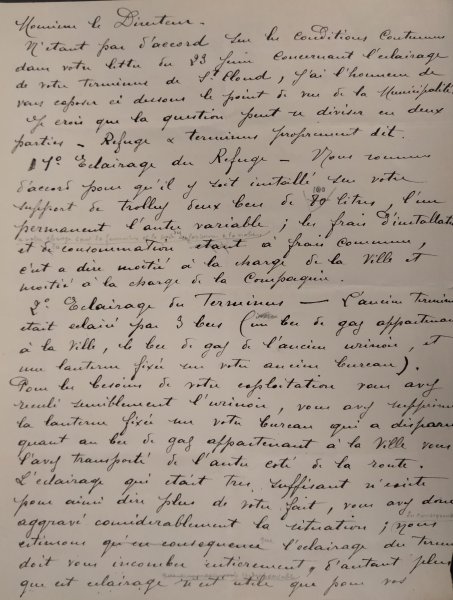 Monsieur le Directeur.
N'étant pas d'accord sur les conditions contenues
dans votre lettre du 23 Juin concernant l'eclairage
de votre terminus de St Cloud, j'ai l'honneur de
vous exposer ci dessous le point de vue de la Municipalité
Je crois que la question peut se diviser en deux
parties - Refuge & terminus proprement dit.
1º Eclairage du Refuge - Nous sommes
d'accord pour qu'il y soit installé sur votre
support de trolley deux becs de 100 litres, l'un
permanent l'autre variable; les frais d'installation
et de consommation étant à frais communs,
c'est a dire moitié à la charge de la Ville et
moitié à la charge de la Compagnie.
2º Eclairage du Terminus - L'ancien terminus
était eclairé par 3 becs (un bec de gaz appartenant
à la Ville, le bec de gaz de l'ancien urinoir, et
une lanterne fixée sur votre ancien bureau).
Pour les besoins de votre exploitation vous avez
reculé sensiblement l'urinoir, vous avez supprimé
la lanterne fixée sur votre bureau qui a disparu
quant au bec de gaz appartenant à la Ville vous
l'avez transporté de l'autre coté de la route.
L'éclairage qui etait tres suffisant n'existe
pour ainsi dire plus de votre fait, vous avez donc
aggravé considerablement la situation; nous
estimons qu'en consequence que l'eclairage du Terminus
doit vous incomber entierement, d'autant plus
que cet eclairage n'est utile que pour vos